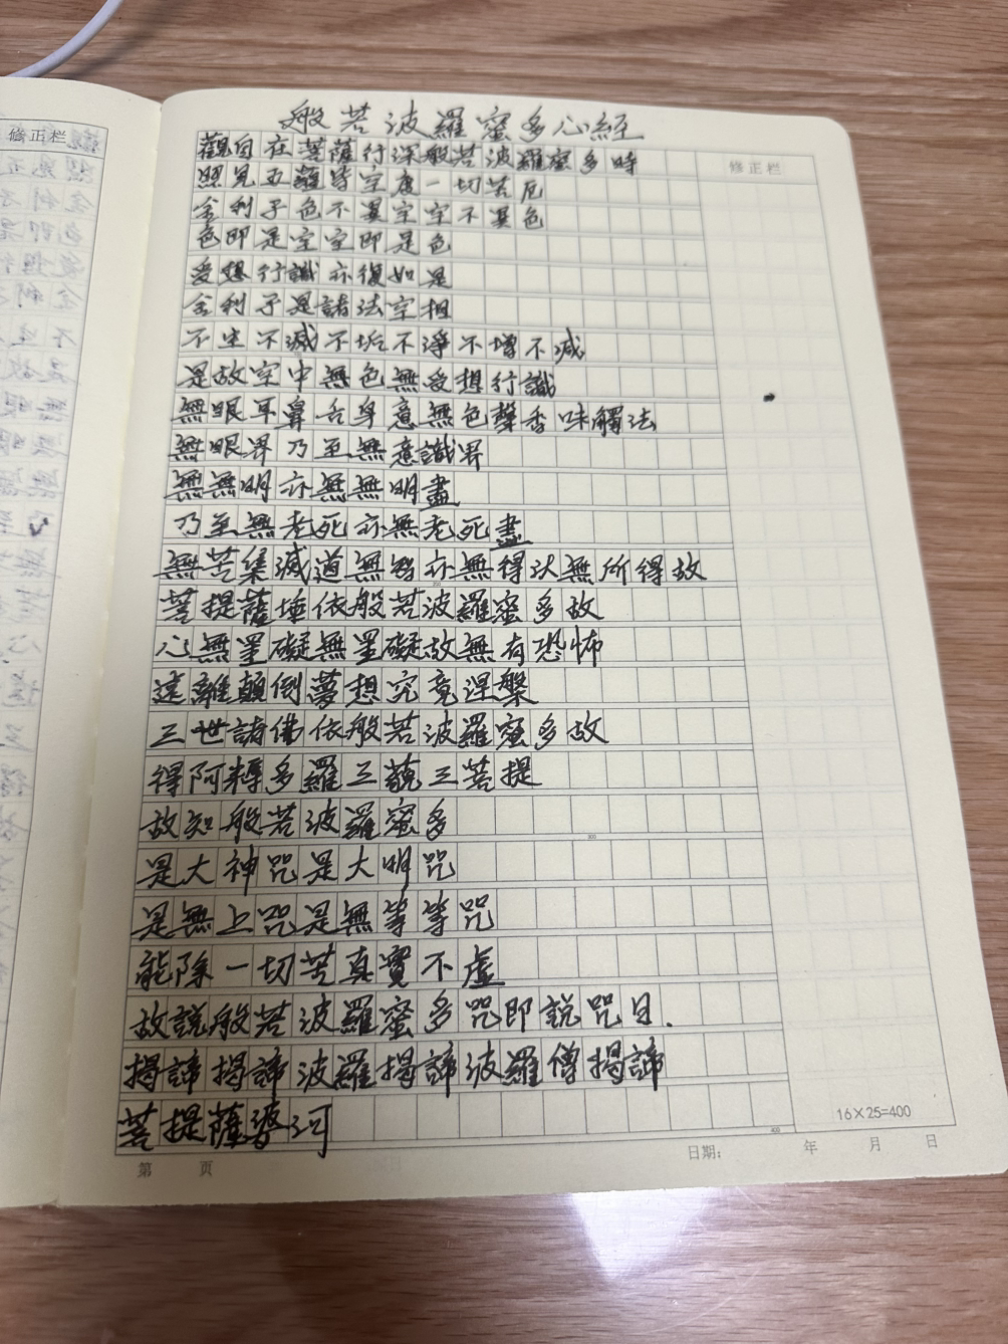 修正栏
般若波羅蜜多心經
觀自在菩薩行深般若波羅蜜多時
修正栏
照見五蘊皆空度一切苦厄
舍利子色不異空空不異色
色即是空空即是色
受想行識亦復如是
舍利子是諸法空相
不生不滅不垢不淨不增不減
是故空中無色無受想行識
無眼耳鼻舌身意無色聲香味觸法
無眼界乃至無意識界
無無明亦無無明盡
乃至無老死亦無老死盡
無苦集滅道無智亦無得以無所得故
菩提薩埵依般若波羅蜜多故
心無罣礙無罣礙故無有恐怖
遠離顛倒夢想究竟涅槃
三世諸佛依般若波羅蜜多故
得阿耨多羅三藐三菩提
故知般若波羅蜜多
是大神咒是大明咒
是無上咒是無等等咒
能除一切苦真實不虛
故說般若波羅蜜多咒即說咒曰.
揭諦揭諦波羅揭諦波羅僧揭諦
菩提薩婆诃
16×25=400
第 页
日期: 年 月 日